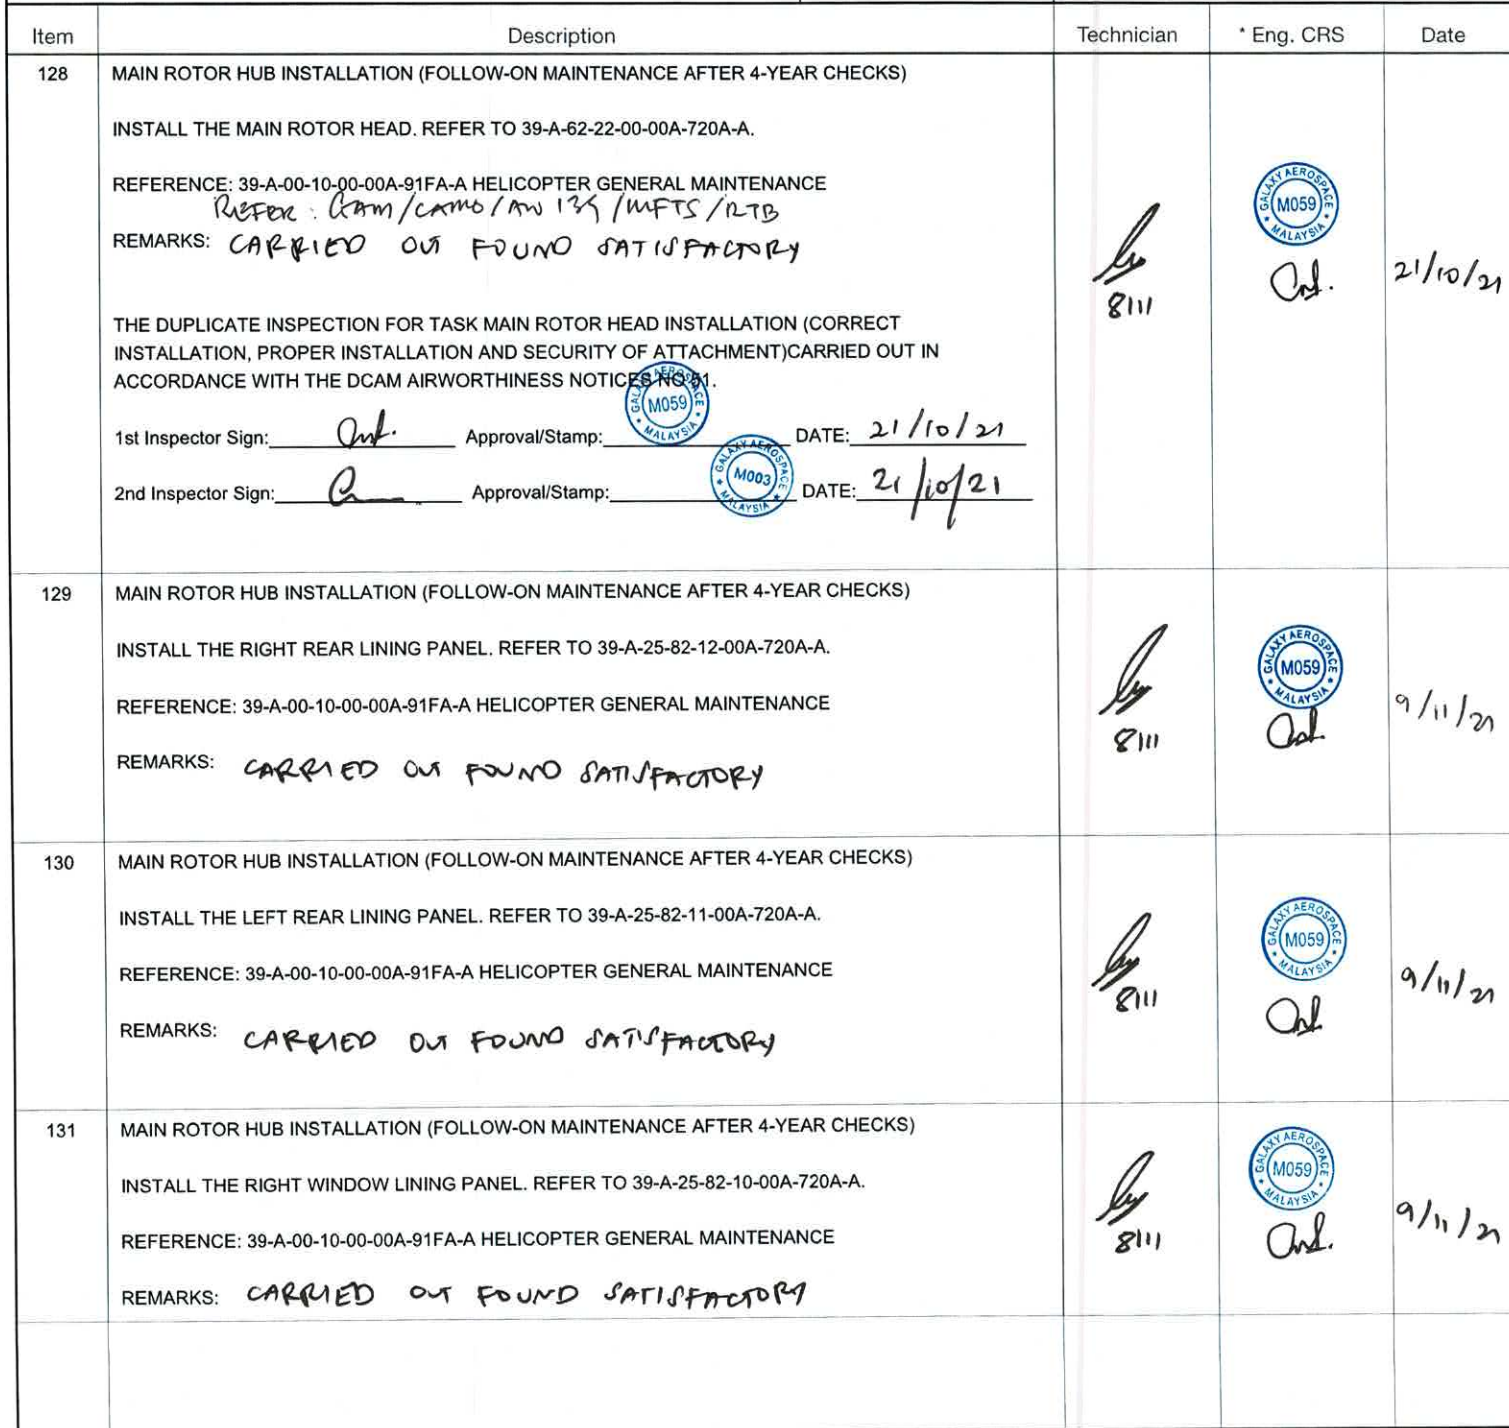 Item Description Technician * Eng. CRS Date
128 MAIN ROTOR HUB INSTALLATION (FOLLOW-ON MAINTENANCE AFTER 4-YEAR CHECKS)
INSTALL THE MAIN ROTOR HEAD. REFER TO 39-A-62-22-00-00A-720A-A.
REFERENCE: 39-A-00-10-00-00A-91FA-A HELICOPTER GENERAL MAINTENANCE
REFER : GAM/CAMO/AW 139/MFTS/RTB
REMARKS: CARRIED OUT FOUND SATISFACTORY
8111
GALAXY AEROSPACE M059 MALAYSIA
21/10/21
THE DUPLICATE INSPECTION FOR TASK MAIN ROTOR HEAD INSTALLATION (CORRECT
INSTALLATION, PROPER INSTALLATION AND SECURITY OF ATTACHMENT)CARRIED OUT IN
ACCORDANCE WITH THE DCAM AIRWORTHINESS NOTICES NO 51.
1st Inspector Sign: Approval/Stamp: GALAXY AEROSPACE M059 MALAYSIA DATE: 21/10/21
2nd Inspector Sign: Approval/Stamp: GALAXY AEROSPACE M003 MALAYSIA DATE: 21/10/21
129 MAIN ROTOR HUB INSTALLATION (FOLLOW-ON MAINTENANCE AFTER 4-YEAR CHECKS)
INSTALL THE RIGHT REAR LINING PANEL. REFER TO 39-A-25-82-12-00A-720A-A.
REFERENCE: 39-A-00-10-00-00A-91FA-A HELICOPTER GENERAL MAINTENANCE
REMARKS: CARRIED OUT FOUND SATISFACTORY
8111
GALAXY AEROSPACE M059 MALAYSIA
9/11/21
130 MAIN ROTOR HUB INSTALLATION (FOLLOW-ON MAINTENANCE AFTER 4-YEAR CHECKS)
INSTALL THE LEFT REAR LINING PANEL. REFER TO 39-A-25-82-11-00A-720A-A.
REFERENCE: 39-A-00-10-00-00A-91FA-A HELICOPTER GENERAL MAINTENANCE
REMARKS: CARRIED OUT FOUND SATISFACTORY
8111
GALAXY AEROSPACE M059 MALAYSIA
9/11/21
131 MAIN ROTOR HUB INSTALLATION (FOLLOW-ON MAINTENANCE AFTER 4-YEAR CHECKS)
INSTALL THE RIGHT WINDOW LINING PANEL. REFER TO 39-A-25-82-10-00A-720A-A.
REFERENCE: 39-A-00-10-00-00A-91FA-A HELICOPTER GENERAL MAINTENANCE
REMARKS: CARRIED OUT FOUND SATISFACTORY
8111
GALAXY AEROSPACE M059 MALAYSIA
9/11/21